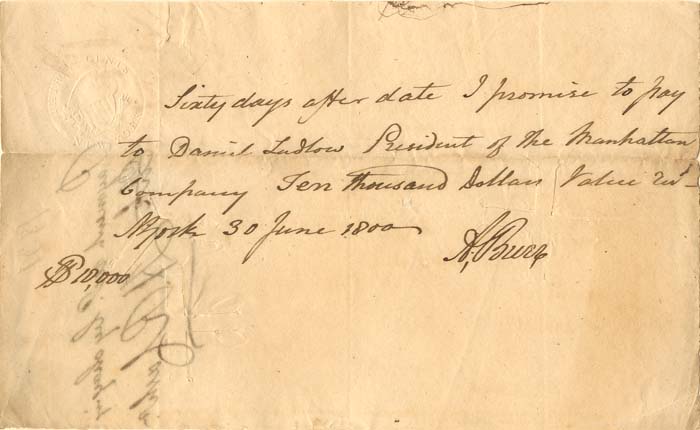 Sixty days after date I promise to pay
to Daniel Ludlow President of the Manhattan
Company Ten thousand Dollars Value Recd
NYork 30 June 1800
A, Burr
$10,000